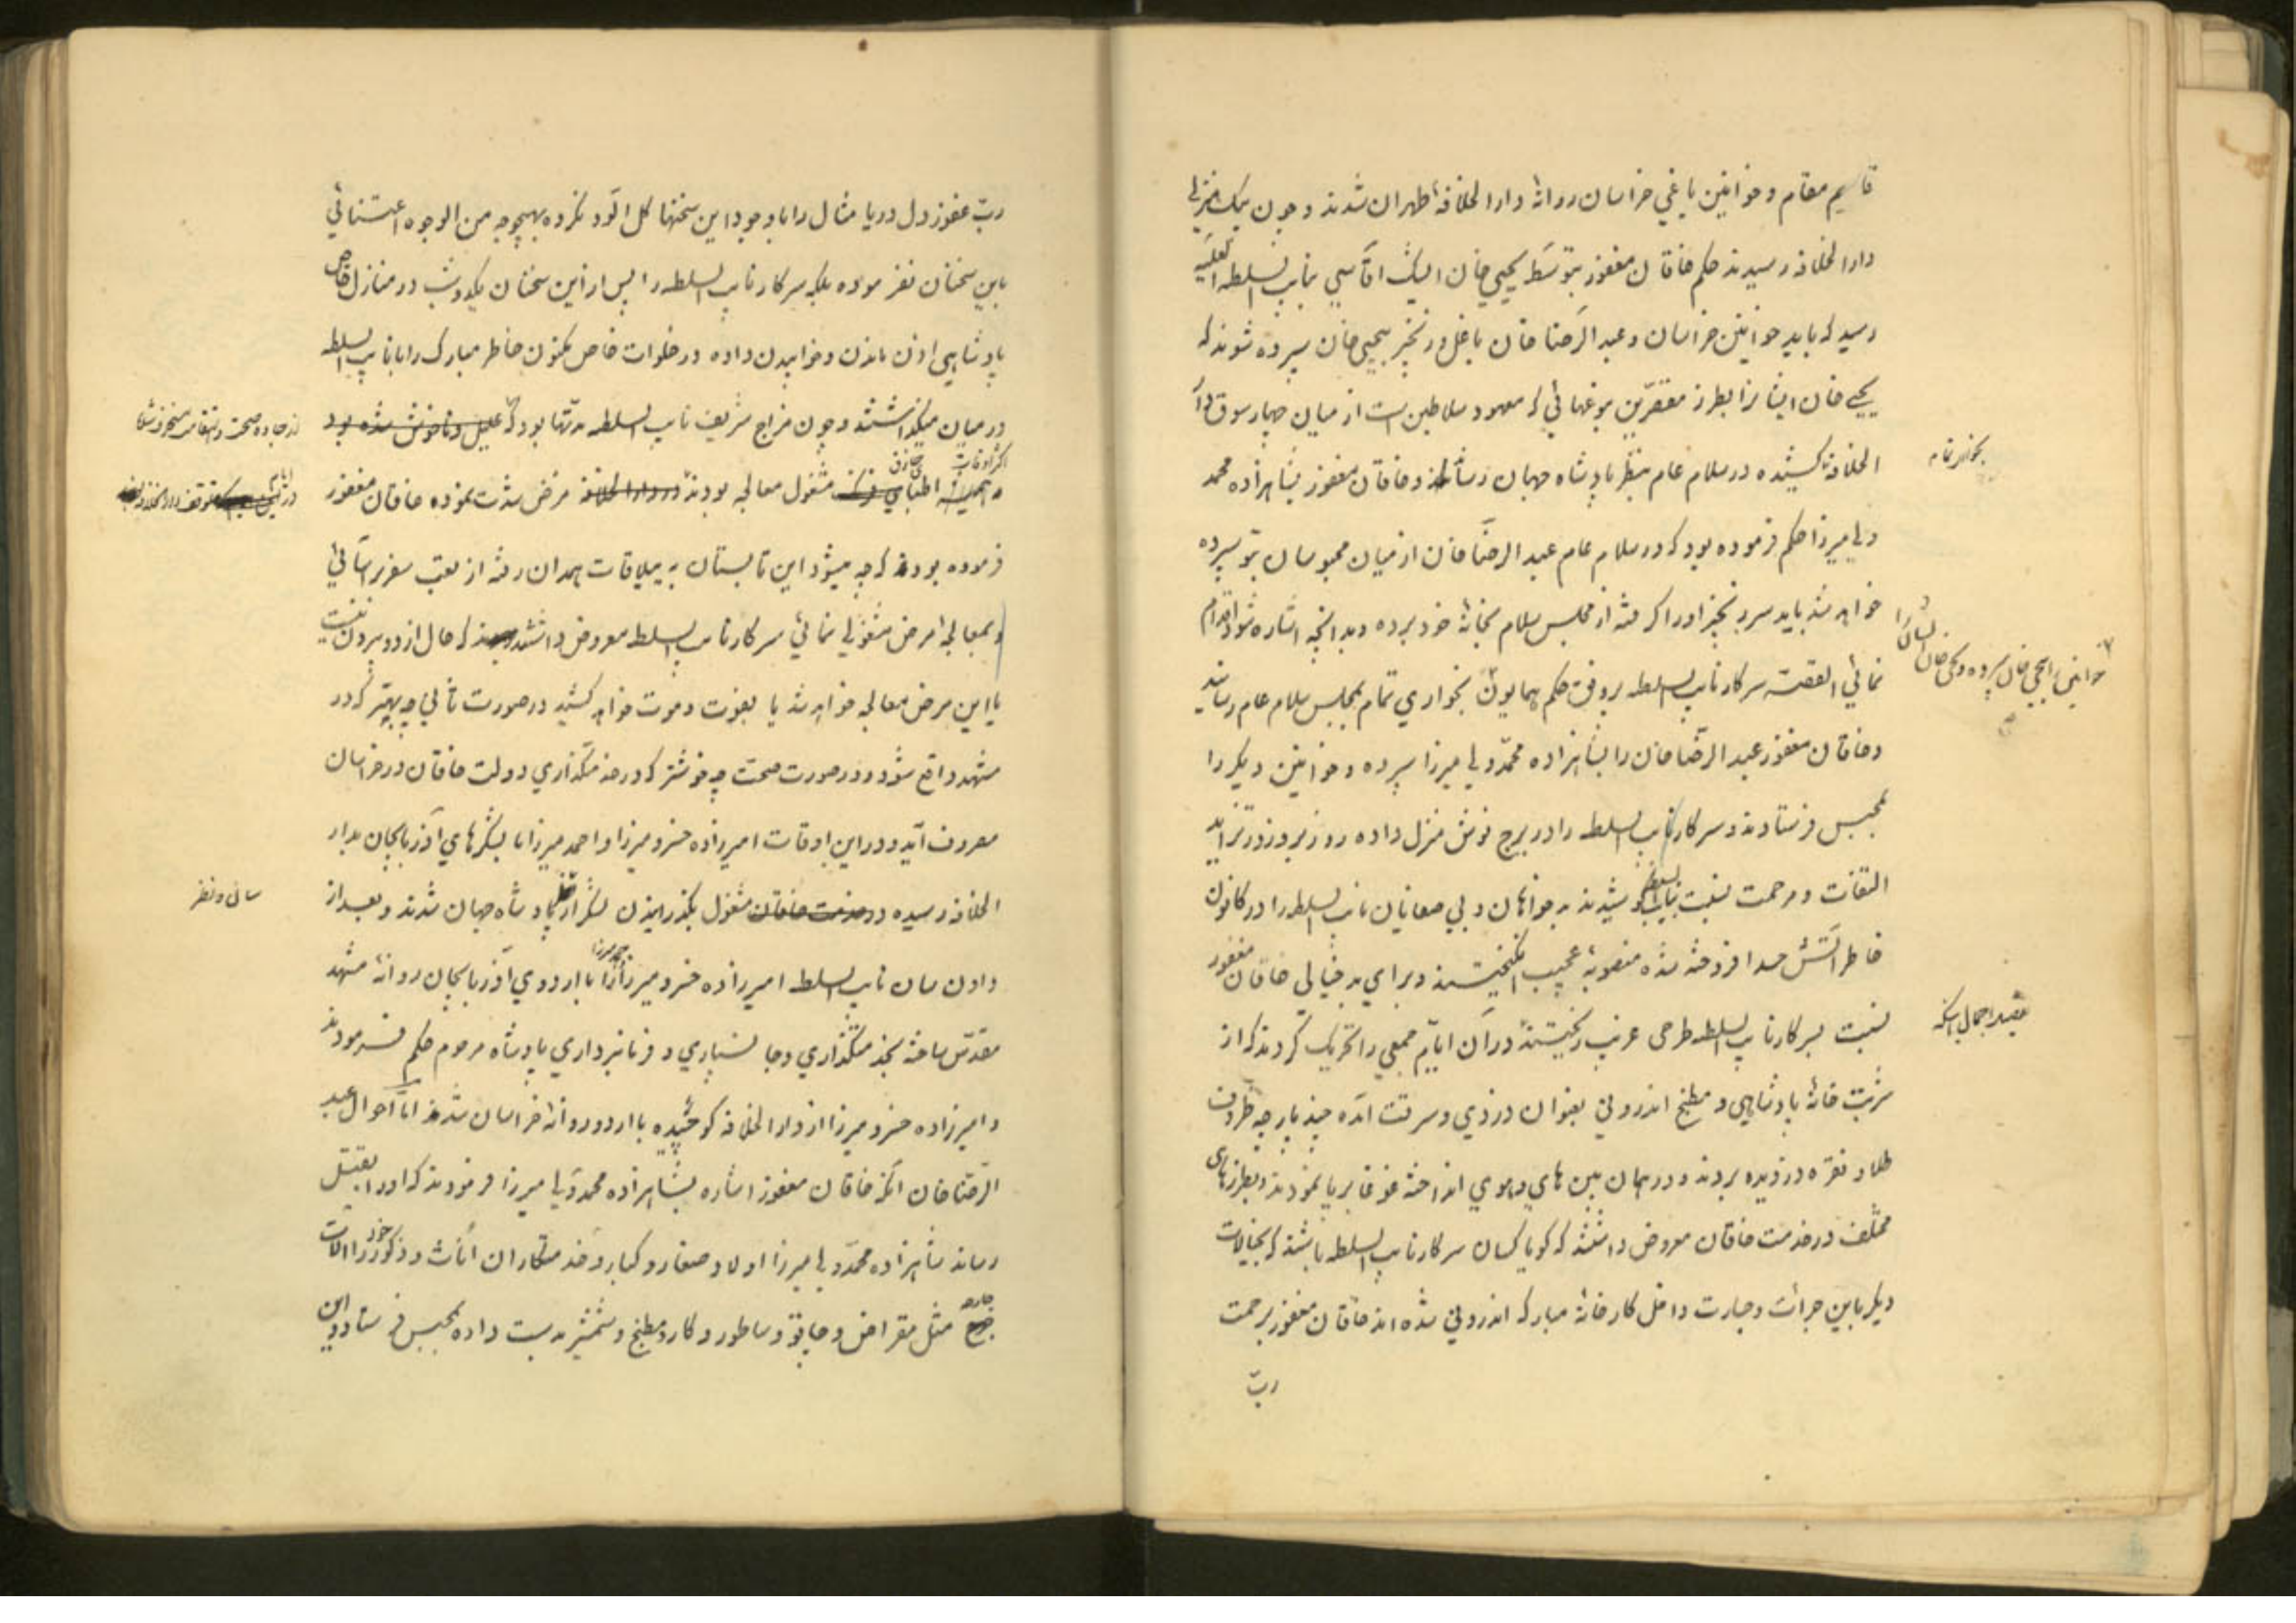 قایم مقام و خوانین یاغی خراسان روانهٔ دار الخلافهٔ طهران شدند و چون یک منزلی
دار الخلافه رسیدند حکم خاقان مغفور بتوسّط یحیی خان ایشیک آقاسی بنایب السلطنه العلیّه
رسید که باید خوانین خراسان و عبد الرّضا خان با غل و زنجیر بیحیی خان سپرده شوند که
یحیی خان ایشانرا بطرز مقصّرین یوغهائی که معهود سلاطین است از میان چهار سوق دار
الخلافه کشیده در سلام عام بنظر پادشاه جهان رساند و خاقان مغفور بشاهزاده محمد
بخواری تمام
ولی میرزا حکم فرموده بود که در سلام عام عبد الرضا خان از میان محبوسان بتو سپرده
خواهد شد باید سر زنجیر اورا گرفته از مجلس سلام بخانهٔ خود برده و بدانچه اشاره شود اقدام
خوانین را بیحیی خان سپرده و یحیی خان ایشان را
نمائی القصّه سرکار نایب السلطنه بر وفق حکم همایون بخواری تمام بمجلس سلام عام رسانید
و خاقان مغفور عبد الرّضا خان را بشاهزاده محمّد ولی میرزا سپرده و خوانین دیگر را
بمحبس فرستادند و سرکار نایب السلطنه را در برج نوش منزل داده روز بروز در تزاید
التفات و مرحمت نسبت بنایب السلطنه کوشیدند بدخواهان و بی صفایان نایب السلطنه را در کانون
خاطر آتش حسد افروخته شده منصوبهٔ عجیب انگیختند و برای بدخیالی خاقان مغفور
نسبت بسرکار نایب السلطنه طرحی غریب ریختند در آن ایّام جمعی را تحریک کردند که از
شربت خانهٔ پادشاهی و مطبخ اندرونی بعنوان دزدی و سرقت آمده چند پارچه ظروف
طلا و نقره دزدیده بردند و در همان بین های و هوی انداخته غوغا برپا نمودند و بطرزهای
مختلف در خدمت خاقان معروض داشتند که گویا کسان سرکار نایب السلطنه باشند که بخیالات
دیگر باین جرأت و جسارت داخل کارخانهٔ مبارکه اندرونی شده اند خاقان مغفور برحمت
ربّ
ربّ غفور دل دریا مثال را با وجود این سخنها گل آلود نکرده بهیچوجه من الوجوه اعتنائی
باین سخنان نفرموده بلکه سرکار نایب السلطنه را پس از این سخنان یکدو شب در منازل خاص
پادشاهی اذن ماندن و خوابیدن داده در خلوات خاص مکنون خاطر مبارک را با نایب السلطنه
در میان میگذاشتند و چون مزاج شریف نایب السلطنه مدتها بود که علیل و ناخوش شده بود
از جاده صحت و استقامت منحرف شده
اکثر اوقات اطبای حاذق مشغول معالجه بودند در دار الخلافه مرض شدت نموده خاقان مغفور
در ایام توقف دار الخلافه
فرموده بودند که چه میشود این تابستان به ییلاقات همدان رفته از تعب سفر بر آسائی
و بمعالجهٔ مرض مشغولی نمائی سرکار نایب السلطنه معروض داشتند که حال از دو بیرون نیست
یا این مرض معالجه خواهد شد یا بفوت و موت خواهد کشید در صورت ثانی چه بهتر که در
مشهد واقع شود و در صورت صحت چه خوشتر که در خدمتگذاری دولت خاقان در خراسان
مصروف آید و در این اوقات امیرزاده خسرو میرزا و احمد میرزا با لشکرهای آذربایجان بدار
الخلافه رسیده در خدمت خاقان مشغول بگذرانیدن لشکر از نظر پادشاه جهان شدند و بعد از
سان و نظر
دادن سان نایب السلطنه امیرزاده خسرو میرزا و احمد میرزا را با اردوی آذربایجان روانهٔ مشهد
مقدّس ساخته بخدمتگذاری و جانسپاری و فرمانبرداری پادشاه مرحوم حکم فرمودند
و امیرزاده خسرو میرزا از دار الخلافه کوچیده با اردو روانهٔ خراسان شدند امّا احوال عبد
الرّضا خان آنکه خاقان مغفور اشاره بشاهزاده محمد ولی میرزا فرمودند که اورا بقتل
رساند شاهزاده محمّد ولی میرزا اولاد صغار و کبار و خدمتکاران اناث و ذکور خود را آلات
جارحه مثل مقراض و چاقو و ساطور و کارد مطبخ و شمشیر بدست داده بمحبس فرستاد و این